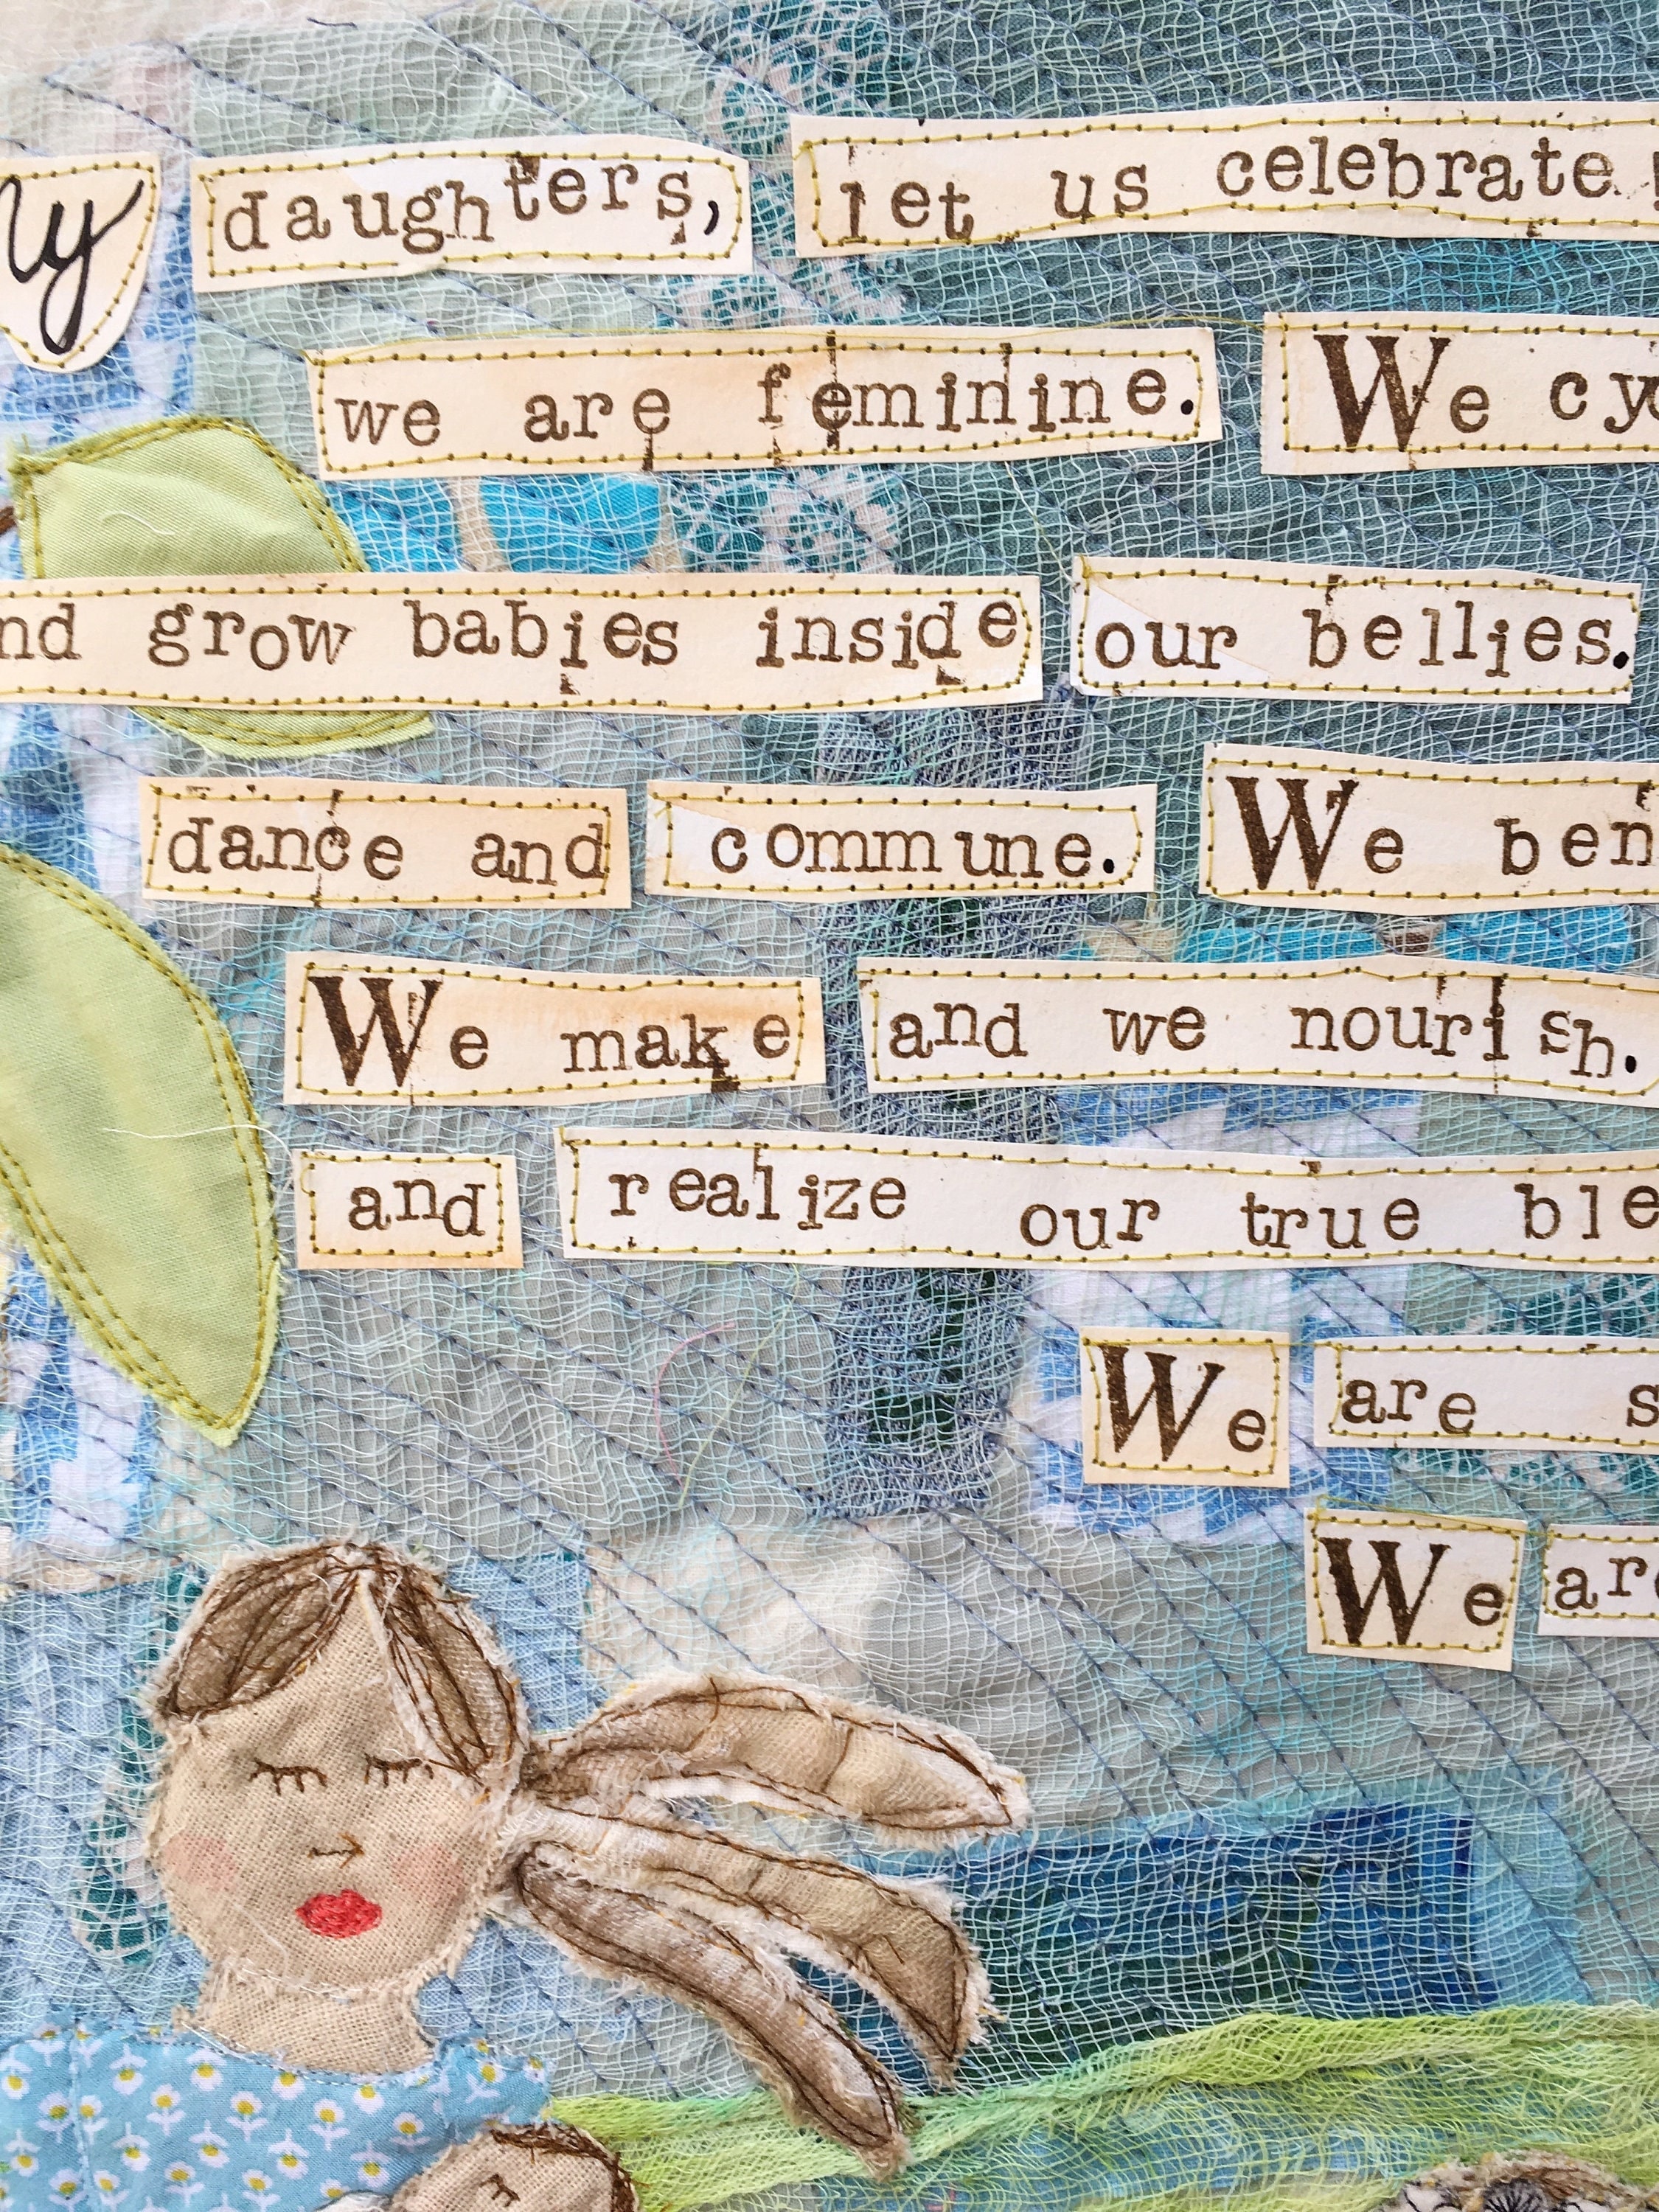 daughters, let us celebrate
we are feminine. We
grow babies inside our bellies.
dance and commune. We
We make and we nourish.
and realize our true
We are
We